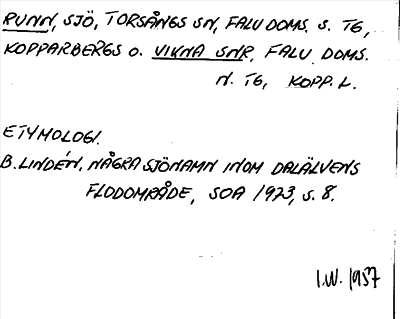 RUNN, SJÖ, TORSÅNGS SN, FALU DOMS. S. TG,
KOPPARBERGS O. VIKHA SNR, FALU DOMS.
N. TG, KOPP. L.
ETYMOLOGI.
B. LINDÉN, NÅGRA SJÖNAMN INOM DALÄLVENS
FLODOMRÅDE, SOA 1923, S. 8.
I.W. 1957